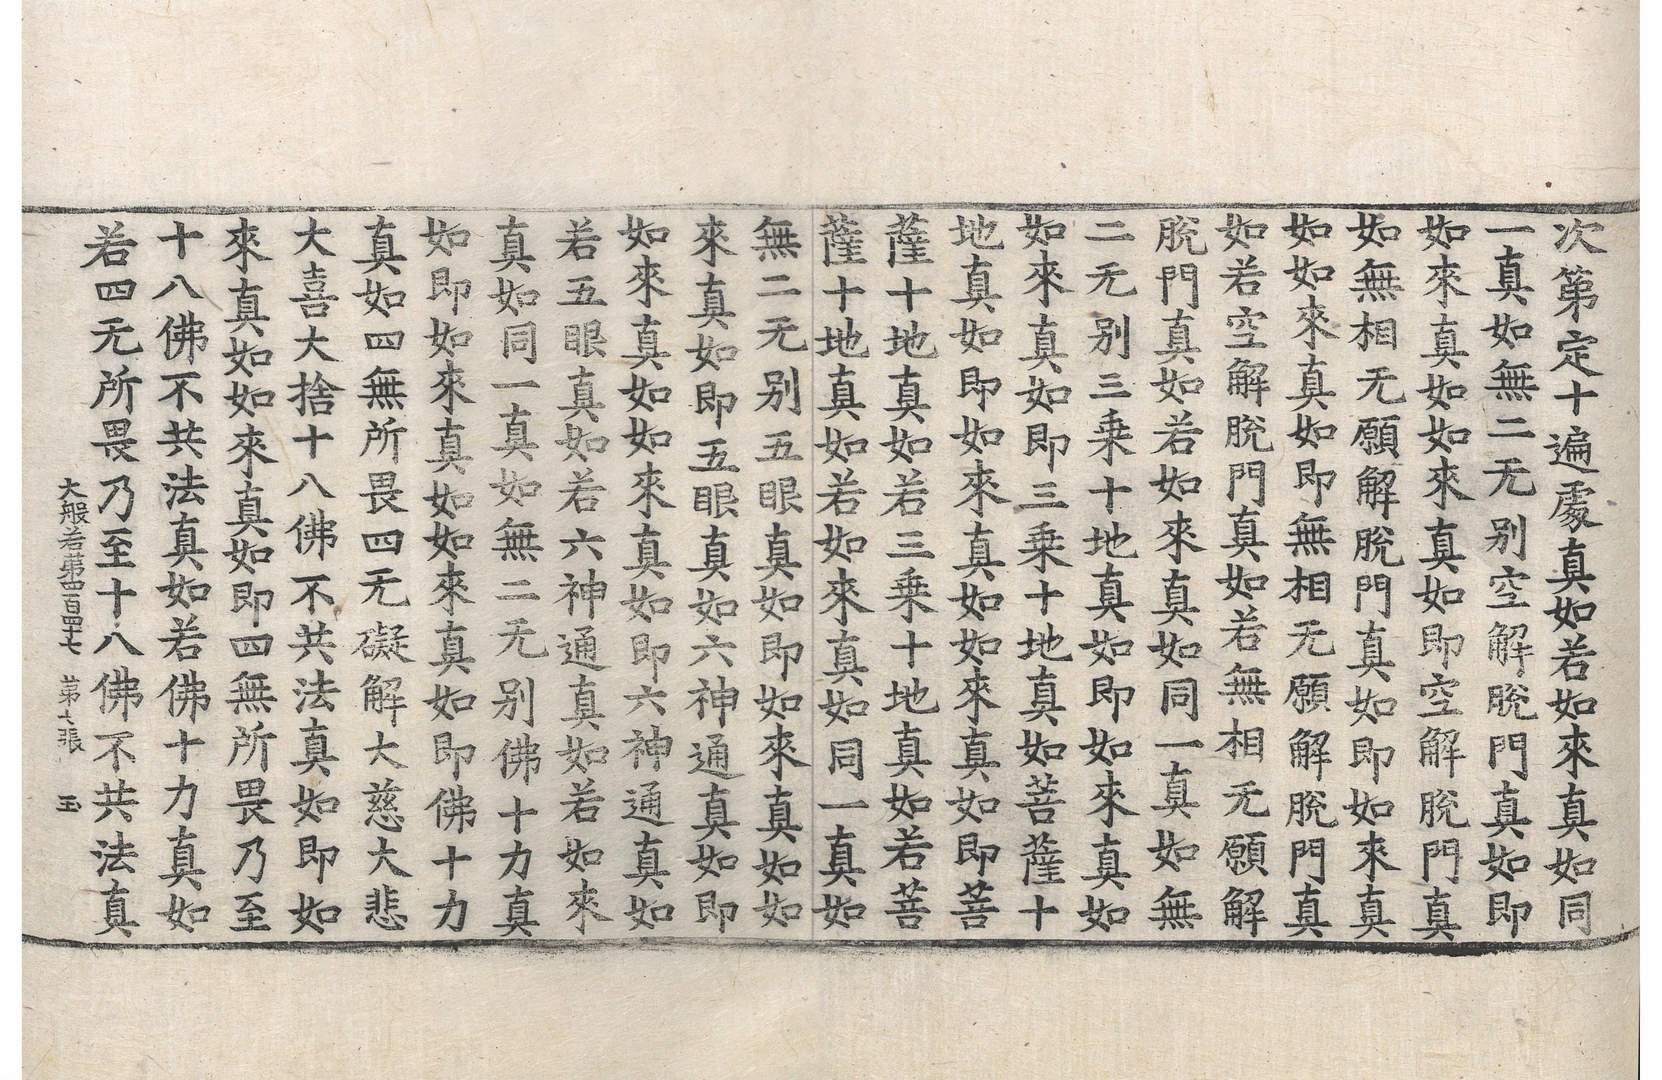 次第定十遍處真如若如來真如同
一真如無二无别空解脫門真如即
如來真如如來真如即空解脫門真
如無相无願解脫門真如即如來真
如如來真如即無相无願解脫門真
如若空解脫門真如若無相无願解
脫門真如若如來真如同一真如無
二无别三乗十地真如即如來真如
如來真如即三乗十地真如菩薩十
地真如即如來真如如來真如即菩
薩十地真如若三乗十地真如若菩
薩十地真如若如來真如同一真如
無二无别五眼真如即如來真如如
來真如即五眼真如六神通真如即
如來真如如來真如即六神通真如
若五眼真如若六神通真如若如來
真如同一真如無二无别佛十力真
如即如來真如如來真如即佛十力
真如四無所畏四无礙解大慈大悲
大喜大捨十八佛不共法真如即如
來真如如來真如即四無所畏乃至
十八佛不共法真如若佛十力真如
若四无所畏乃至十八佛不共法真
大般若第四百四十七 第七張 玉